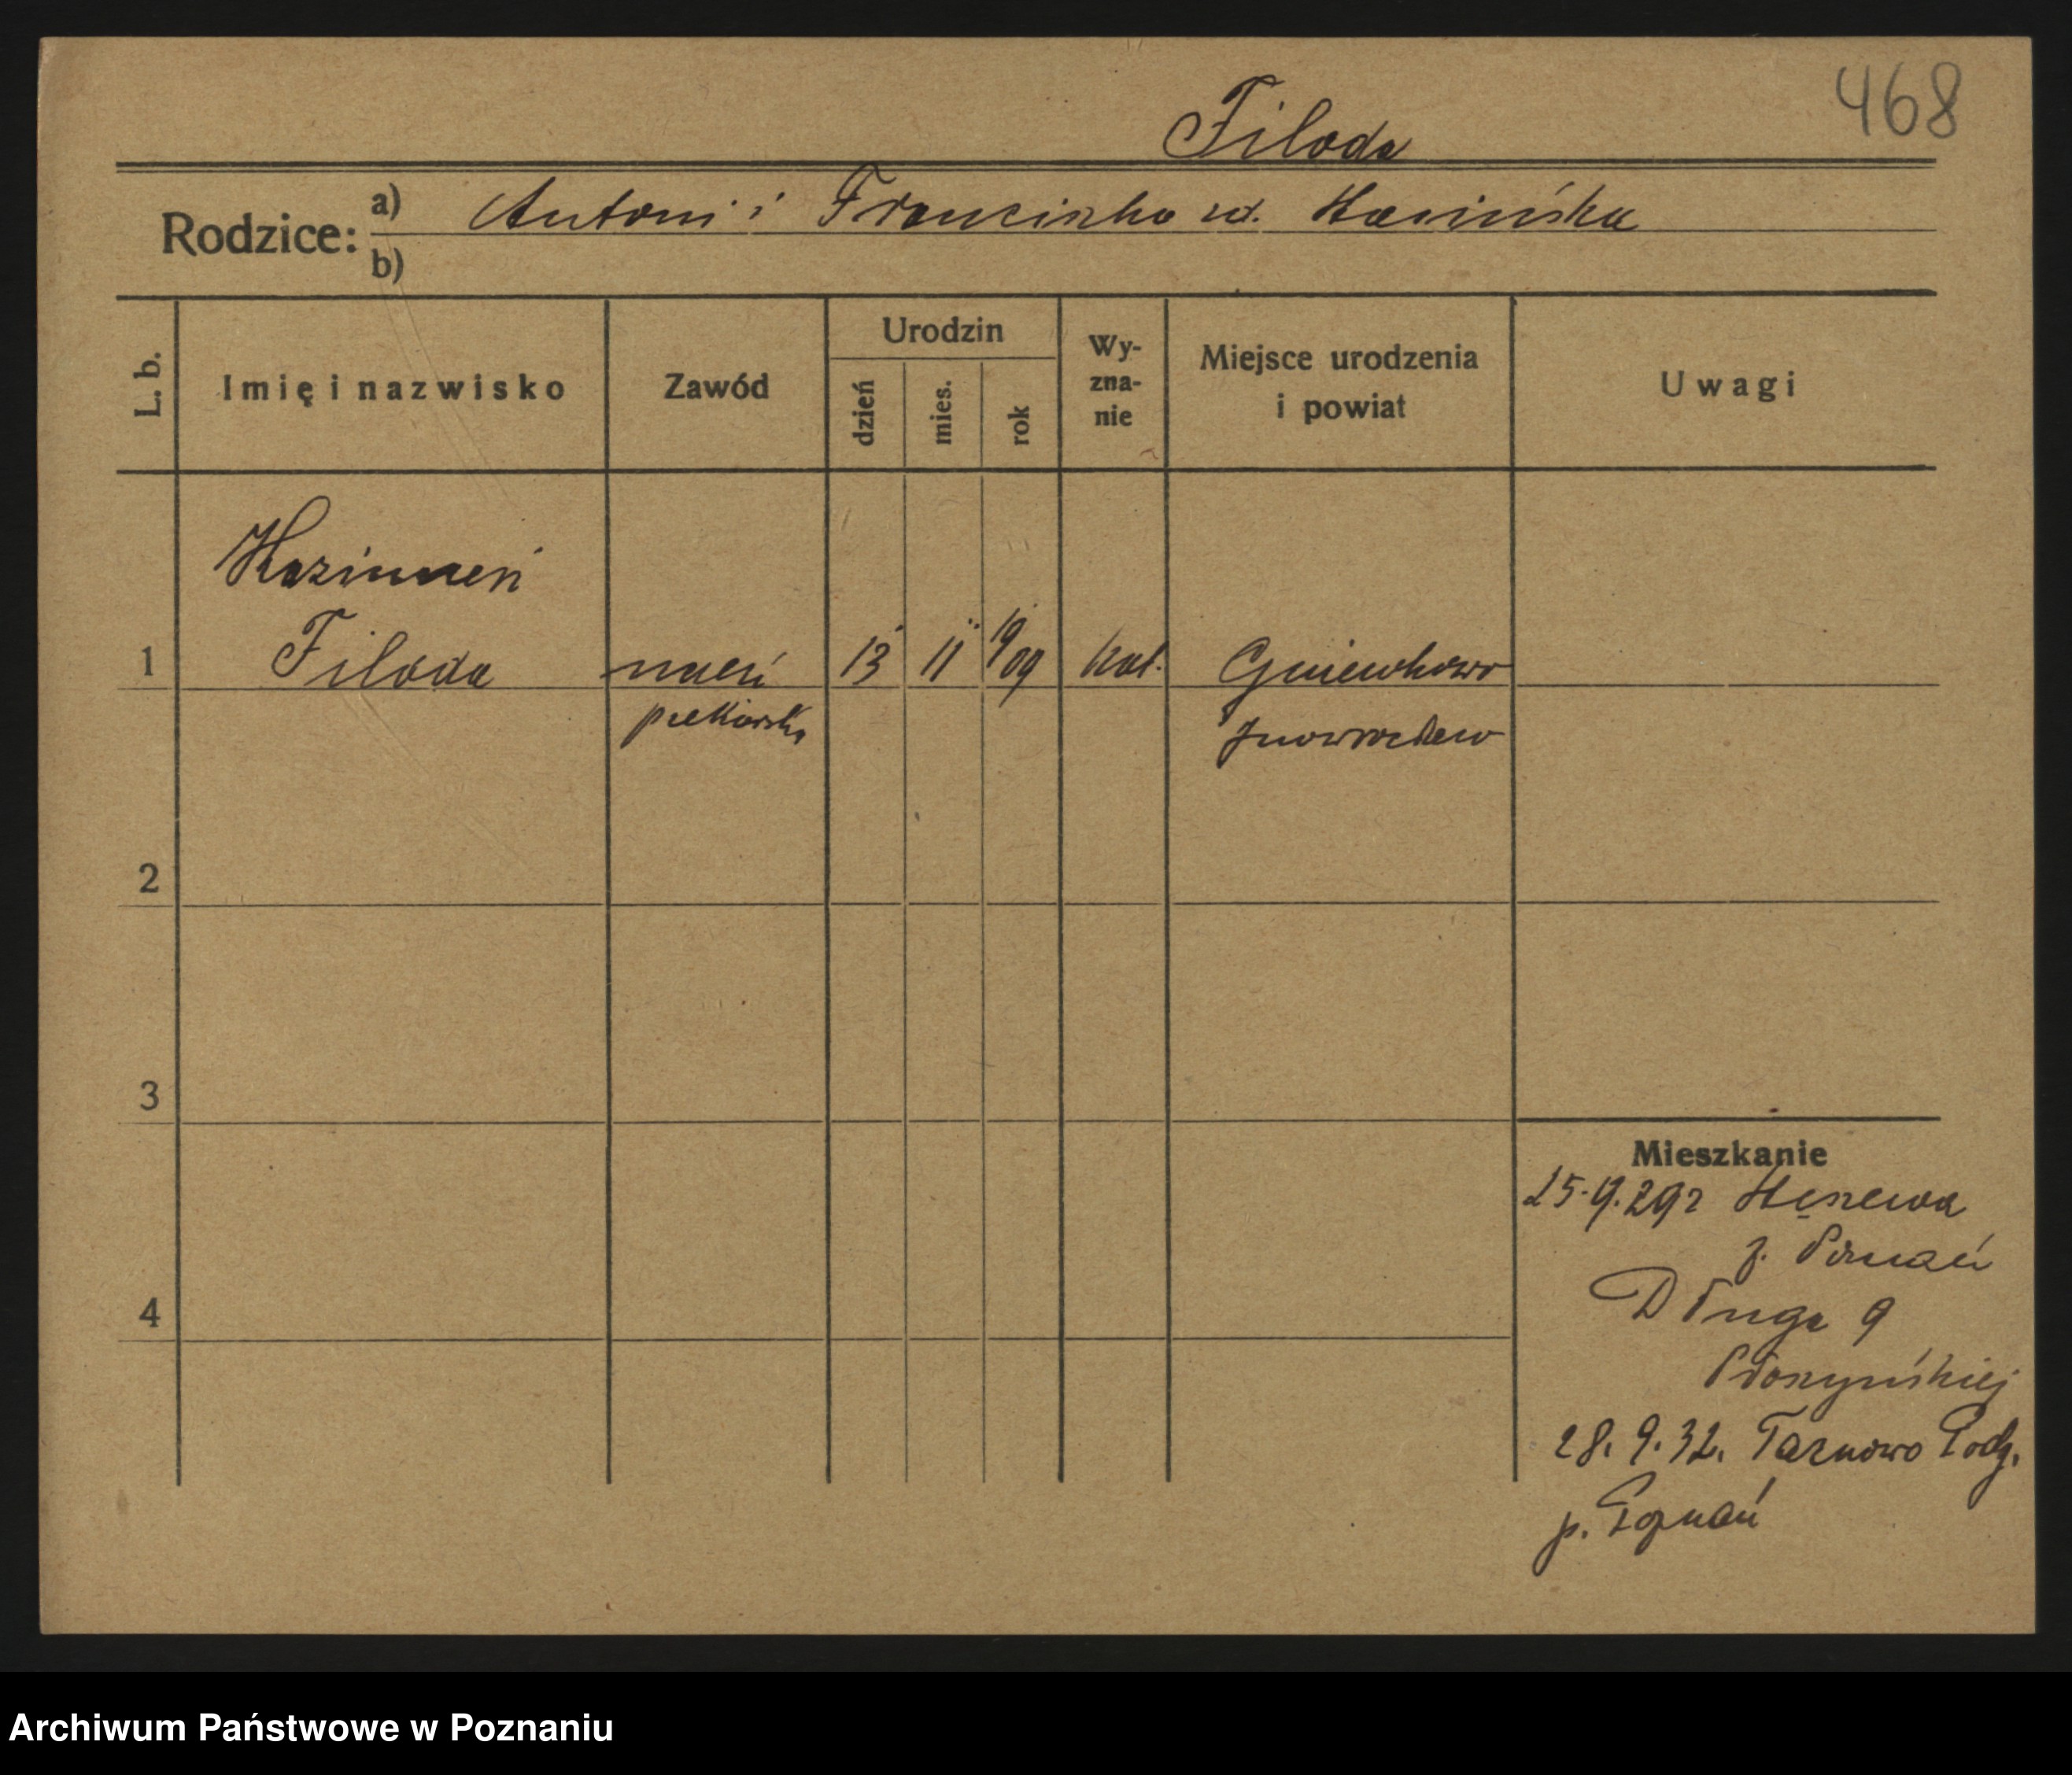 468
Filoda
Rodzice: a) Antoni i Franciszka zd. Kasińska
b)
L. b.
Imię i nazwisko
Zawód
Urodzin
dzień
mies.
rok
Wy-
zna-
nie
Miejsce urodzenia
i powiat
Uwagi
Kazimierz
1 Filoda 13 11 19/09 kat. Gniewkowo
piekarski Inowrocław
2
3
4
Mieszkanie
25.9.29 z
p. Poznań
Długa 9
28.9.32. Tarnowo Podg.
p. Poznań
Archiwum Państwowe w Poznaniu